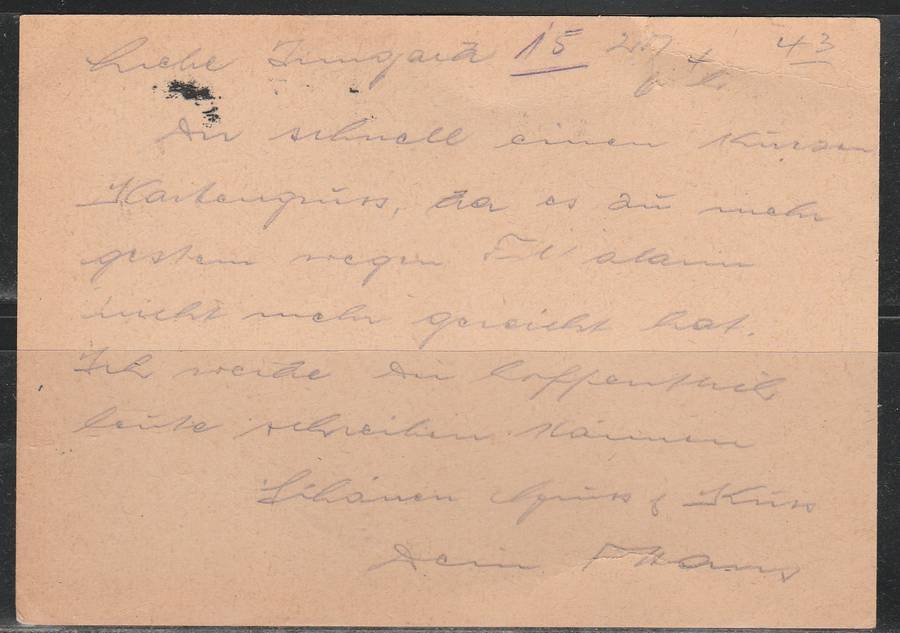 Liebe Irmgard 15 43
Dir schnell einen kurzen
Kartengruss, da es zu mehr
gestern wegen alarm
nicht mehr gereicht hat.
Ich werde Dir hoffentlich
heute schreiben können
Schönen Gruss & Kuss
Dein Hans